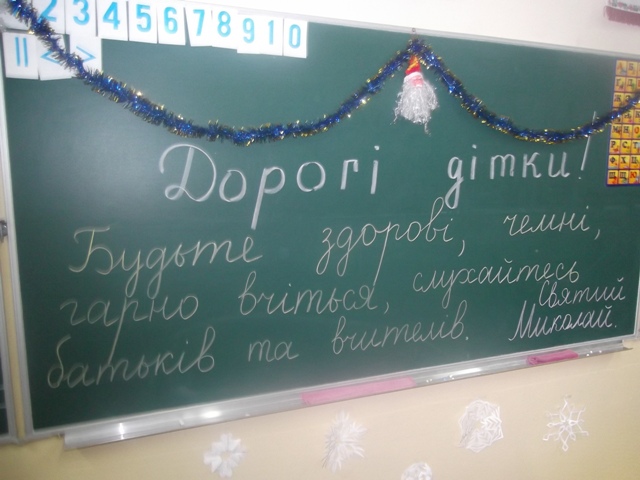 2 3 4 5 6 7 8 9 1 0
|| < >
Дорогі дітки!
Будьте здорові, чемні,
гарно вчіться, слухайтесь
батьків та вчителів.
Святий
Миколай.